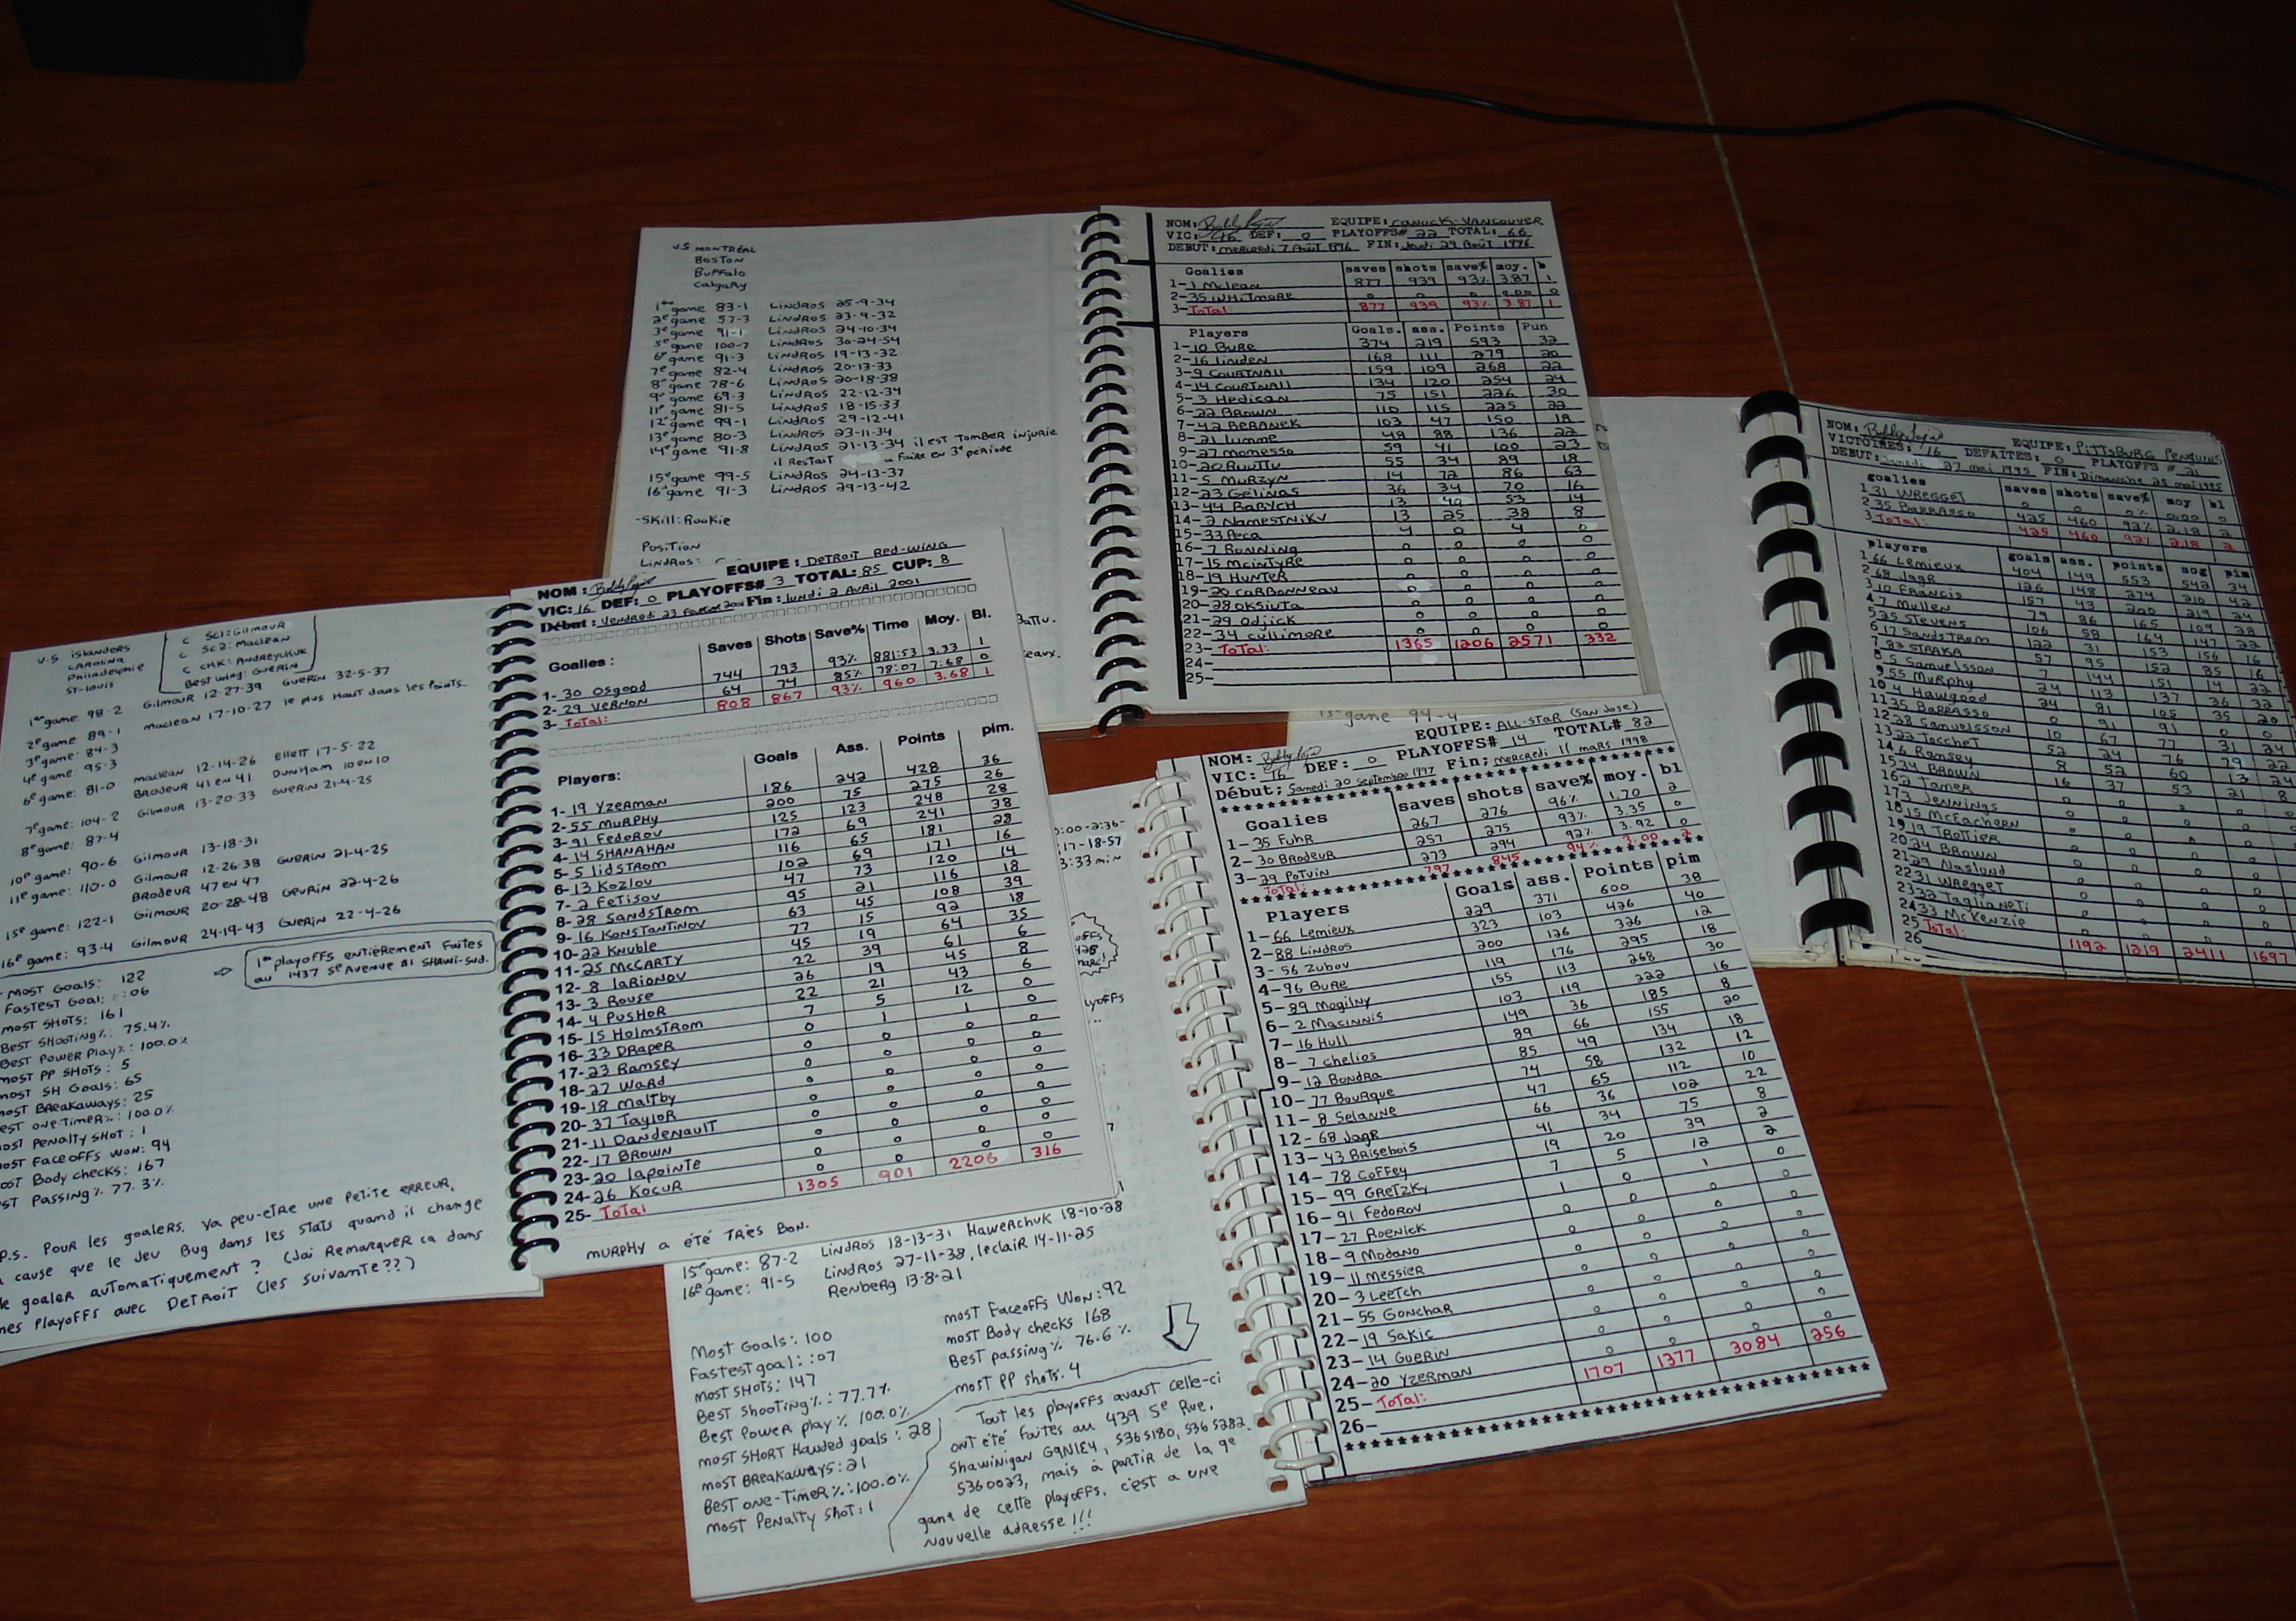 V.S MONTRÉAL
BOSTON
Buffalo
Calgary
1ère game 83-1 LINDROS 25-9-34
2e game 57-3 LINDROS 23-9-32
3e game 91-1 LINDROS 24-10-34
5e game 100-7 LINDROS 30-24-54
6e game 91-3 LINDROS 19-13-32
7e game 82-4 LINDROS 20-13-33
8e game 78-6 LINDROS 20-18-38
9e game 69-3 LINDROS 22-12-34
11e game 81-5 LINDROS 18-15-33
12e game 99-1 LINDROS 29-12-41
13e game 80-3 LINDROS 23-11-34
14e game 91-8 LINDROS 21-13-34 il est TOMBER INJURIE
il RESTAIT à FAIRE EN 3e période
15e game 99-5 LINDROS 24-13-37
16e game 91-3 LINDROS 29-13-42
-SKILL: Rookie
Position
LINDROS:
NOM: EQUIPE: CANUCK-VANCOUVER
VIC: 16 DEF: 0 PLAYOFFS# 22 TOTAL: 66
DEBUT: mercredi 7 Août 1996 FIN: Jeudi 29 Août 1996
Goalies saves shots save% moy. b
1- 1 Mclean 877 939 93% 3.87 1
2- 35 WHITMORE 0 0 0 0.00 0
3- TOTAL: 877 939 93% 3.87 1
Players Goals. ass. Points Pun
1- 10 BURE 374 219 593 32
2- 16 Linden 168 111 279 20
3- 9 COURTNALL 159 109 268 22
4- 14 COURTNALL 134 120 254 24
5- 3 Hedican 75 151 226 30
6- 22 BROWN 110 115 225 22
7- 42 BERANEK 103 47 150 18
8- 21 Lumme 48 88 136 22
9- 27 momesso 59 41 100 23
10- 20 RUUTTU 55 34 89 18
11- 5 MURZYN 14 72 86 63
12- 23 Gélinas 36 34 70 16
13- 44 BABYCH 13 40 53 14
14- 2 NAMESTNIKV 13 25 38 8
15- 33 Peca 4 0 4 0
16- 7 RONNING 0 0 0 0
17- 15 MCINTYRE 0 0 0 0
18- 19 HUNTER 0 0 0 0
19- 20 CARBONNEAU 0 0 0 0
20- 28 OKSIUTA 0 0 0 0
21- 29 Odjick 0 0 0 0
22- 34 cullimore 0 0 0 0
23- TOTAL: 1365 1206 2571 332
24-
25-
NOM: EQUIPE: PITTSBURG PENGUINS
VICTOIRES: 16 DEFAITES: 0 PLAYOFFS # 21
DEBUT: Samedi 27 mai 1995 FIN: Dimanche 28 mai 1995
goalies saves shots save% moy bl
1 31 WREGGET 0 0 0% 0.00 0
2 35 BARRASSO 425 460 92% 2.18 2
3 TOTAL: 425 460 92% 2.18 2
players goals ass. points sog pim
1 66 Lemieux 404 149 553 542 34
2 68 JAGR 126 148 274 210 42
3 10 FRANCIS 157 43 200 219 24
4 7 Mullen 79 86 165 109 28
5 25 STEVENS 106 58 164 147 22
6 17 SANDSTROM 122 31 153 156 16
7 82 STRAKA 57 95 152 85 16
8 5 Samuelsson 7 144 151 14 22
9 55 MURPHY 24 113 137 36 32
10 4 Hawgood 24 81 105 35 20
11 35 BARRASSO 0 91 91 0 0
12 28 Samuelsson 10 67 77 31 24
13 22 Tocchet 52 24 76 79 22
14 6 Ramsey 8 52 60 13 24
15 24 BROWN 16 37 53 21 8
16 2 Tamer 0 0 0 0 0
17 3 JENNINGS 0 0 0 0 0
18 15 McEachern 0 0 0 0 0
19 19 TROTTIER 0 0 0 0 0
20 24 BROWN 0 0 0 0 0
21 29 Naslund 0 0 0 0 0
22 31 WREGGET 0 0 0 0 0
23 32 TAGLIANETI 0 0 0 0 0
24 33 McKENZIE 0 0 0 0 0
25 TOTAL: 1192 1219 2411 1697
26
V.S ISLANDERS
CAROLINA
Philadelphie
ST-LOUIS
C SC1: GILMOUR
C SC2: MACLEAN
C CHK: ANDREYCHUK
BEST WING: GUERIN
1ère game: 98-2 GILMOUR 12-27-39 GUERIN 32-5-37
2e game: 89-1 MACLEAN 17-10-27 le plus HAUT dans les Points.
3e game: 84-3
4e game: 95-3
6e game: 81-0 MACLEAN 12-14-26 Ellett 17-5-22
BRODEUR 41 en 41 DUNHAM 10 en 10
7e game: 104-2 GILMOUR 13-20-33 GUERIN 21-4-25
8e game: 87-4
10e game: 90-6 Gilmour 13-18-31
11e game: 110-0 Gilmour 12-26-38 GUERIN 21-4-25
BRODEUR 47 en 47
15e game: 122-1 GILMOUR 20-28-48 GUERIN 22-4-26
16e game: 93-4 Gilmour 24-19-43 GUERIN 22-4-26
1ère Playoffs ENTIÈREMENT FAITES
au 1437 5e Avenue #1 SHAWI-SUD.
MOST GOALS: 122
FASTEST GOAL: :06
MOST SHOTS: 161
BEST SHOOTING%: 75.4%
BEST POWER PLAY%: 100.0%
MOST PP SHOTS: 5
MOST SH GOALS: 65
MOST BREAKAWAYS: 25
EST ONE-TIMER%: 100.0%
OST PENALTY SHOT: 1
OST FACEOFFS WON: 94
OST BODY CHECKS: 167
ST PASSING% 77.3%
P.S. POUR les goalers. Ya peu-etre une Petite ERREUR,
à cause que le Jeu Bug dans les STATS quand il change
le goaler automatiquement? (Jai Remarquer ca dans
mes Playoffs avec DETROIT (les suivante??)
NOM: EQUIPE: DETROIT RED-WING
VIC: 16 DEF: 0 PLAYOFFS# 3 TOTAL: 85 CUP: 8
Début: Vendredi 23 Février 2001 Fin: lundi 2 AVRIL 2001
Goalies: Saves Shots Save% Time Moy. Bl.
1- 30 Osgood 744 793 93% 881:53 3.33 1
2- 29 VERNON 64 74 85% 78:07 7.68 0
3- TOTAL: 808 867 93% 960 3.68 1
Players: Goals Ass. Points pim.
1- 19 YZERMAN 186 242 428 36
2- 55 MURPHY 200 75 275 26
3- 91 FEDOROV 125 123 248 28
4- 14 SHANAHAN 172 69 241 38
5- 5 LIDSTROM 116 65 181 28
6- 13 KOZLOV 102 69 171 16
7- 2 FETISOV 47 73 120 14
8- 28 SANDSTROM 95 21 116 18
9- 16 KONSTANTINOV 63 45 108 39
10- 22 KNUBLE 77 15 92 18
11- 25 McCARTY 45 19 64 35
12- 8 LARIONOV 22 39 61 6
13- 3 ROUSE 26 19 45 8
14- 4 PUSHOR 22 21 43 6
15- 15 HOLMSTROM 7 5 12 0
16- 33 DRAPER 0 1 1 0
17- 23 Ramsey 0 0 0 0
18- 27 WARD 0 0 0 0
19- 18 MALTBY 0 0 0 0
20- 37 TAYLOR 0 0 0 0
21- 11 DANDENAULT 0 0 0 0
22- 17 BROWN 0 0 0 0
23- 20 LAPOINTE 0 0 0 0
24- 26 KOCUR 0 0 0 0
25- TOTAL 1305 901 2206 316
MURPHY A ÉTÉ TRÈS BON.
15e game: 87-2 LINDROS 18-13-31 HAWERCHUK 18-10-28
16e game: 91-5 LINDROS 27-11-38, leclair 14-11-25
RENBERG 13-8-21
MOST GOALS: 100
FASTEST goal: :07
MOST SHOTS: 147
BEST Shooting%: 77.7%
BEST POWER play% 100.0%
MOST SHORT HANDED goals: 28
MOST BREAKAWAYS: 21
BEST ONE-TIMER%: 100.0%
MOST PENALTY SHOT: 1
MOST FACEOFFS WON: 92
MOST Body checks 168
BEST passing% 76.6%
MOST PP shots: 4
Tout les playoffs avant celle-ci
ont été faites au 439 5e Rue.
Shawinigan G9N1E4, 5365180, 5365282.
5360023, mais à partir de la 9e
game de cette playoffs, c'est a une
Nouvelle adresse!!!
NOM: EQUIPE: ALL-STAR (SAN JOSE)
VIC: 16 DEF: 0 PLAYOFFS# 14 TOTAL# 82
Début: Samedi 20 septembre 1997 Fin: Mercredi 11 MARS 1998
Goalies saves shots save% moy. bl
1- 35 FUHR 267 276 96% 1.70 2
2- 30 BRODEUR 257 275 93% 3.35 0
3- 29 POTVIN 273 294 92% 3.92 0
TOTAL: 797 845 94% 3.00 2
Players Goals ass. Points pim
1- 66 Lemieux 229 371 600 38
2- 88 LINDROS 323 103 426 40
3- 56 ZUBOV 200 126 326 12
4- 96 BURE 119 176 295 18
5- 89 Mogilny 155 113 268 30
6- 2 MACINNIS 103 119 222 16
7- 16 Hull 149 36 185 8
8- 7 chelios 89 66 155 20
9- 12 BONDRA 85 49 134 18
10- 77 BOURQUE 74 58 132 12
11- 8 SELANNE 47 65 112 10
12- 68 JAGR 66 36 102 22
13- 43 BRISEBOIS 41 34 75 8
14- 78 COFFEY 19 20 39 2
15- 99 GRETZKY 7 5 12 2
16- 91 FEDOROV 1 0 1 0
17- 27 ROENICK 0 0 0 0
18- 9 MODANO 0 0 0 0
19- 11 MESSIER 0 0 0 0
20- 3 LEETCH 0 0 0 0
21- 55 GONCHAR 0 0 0 0
22- 19 SAKIC 0 0 0 0
23- 14 GUERIN 0 0 0 0
24- 20 YZERMAN 0 0 0 0
25- TOTAL: 1707 1377 3084 256
26-